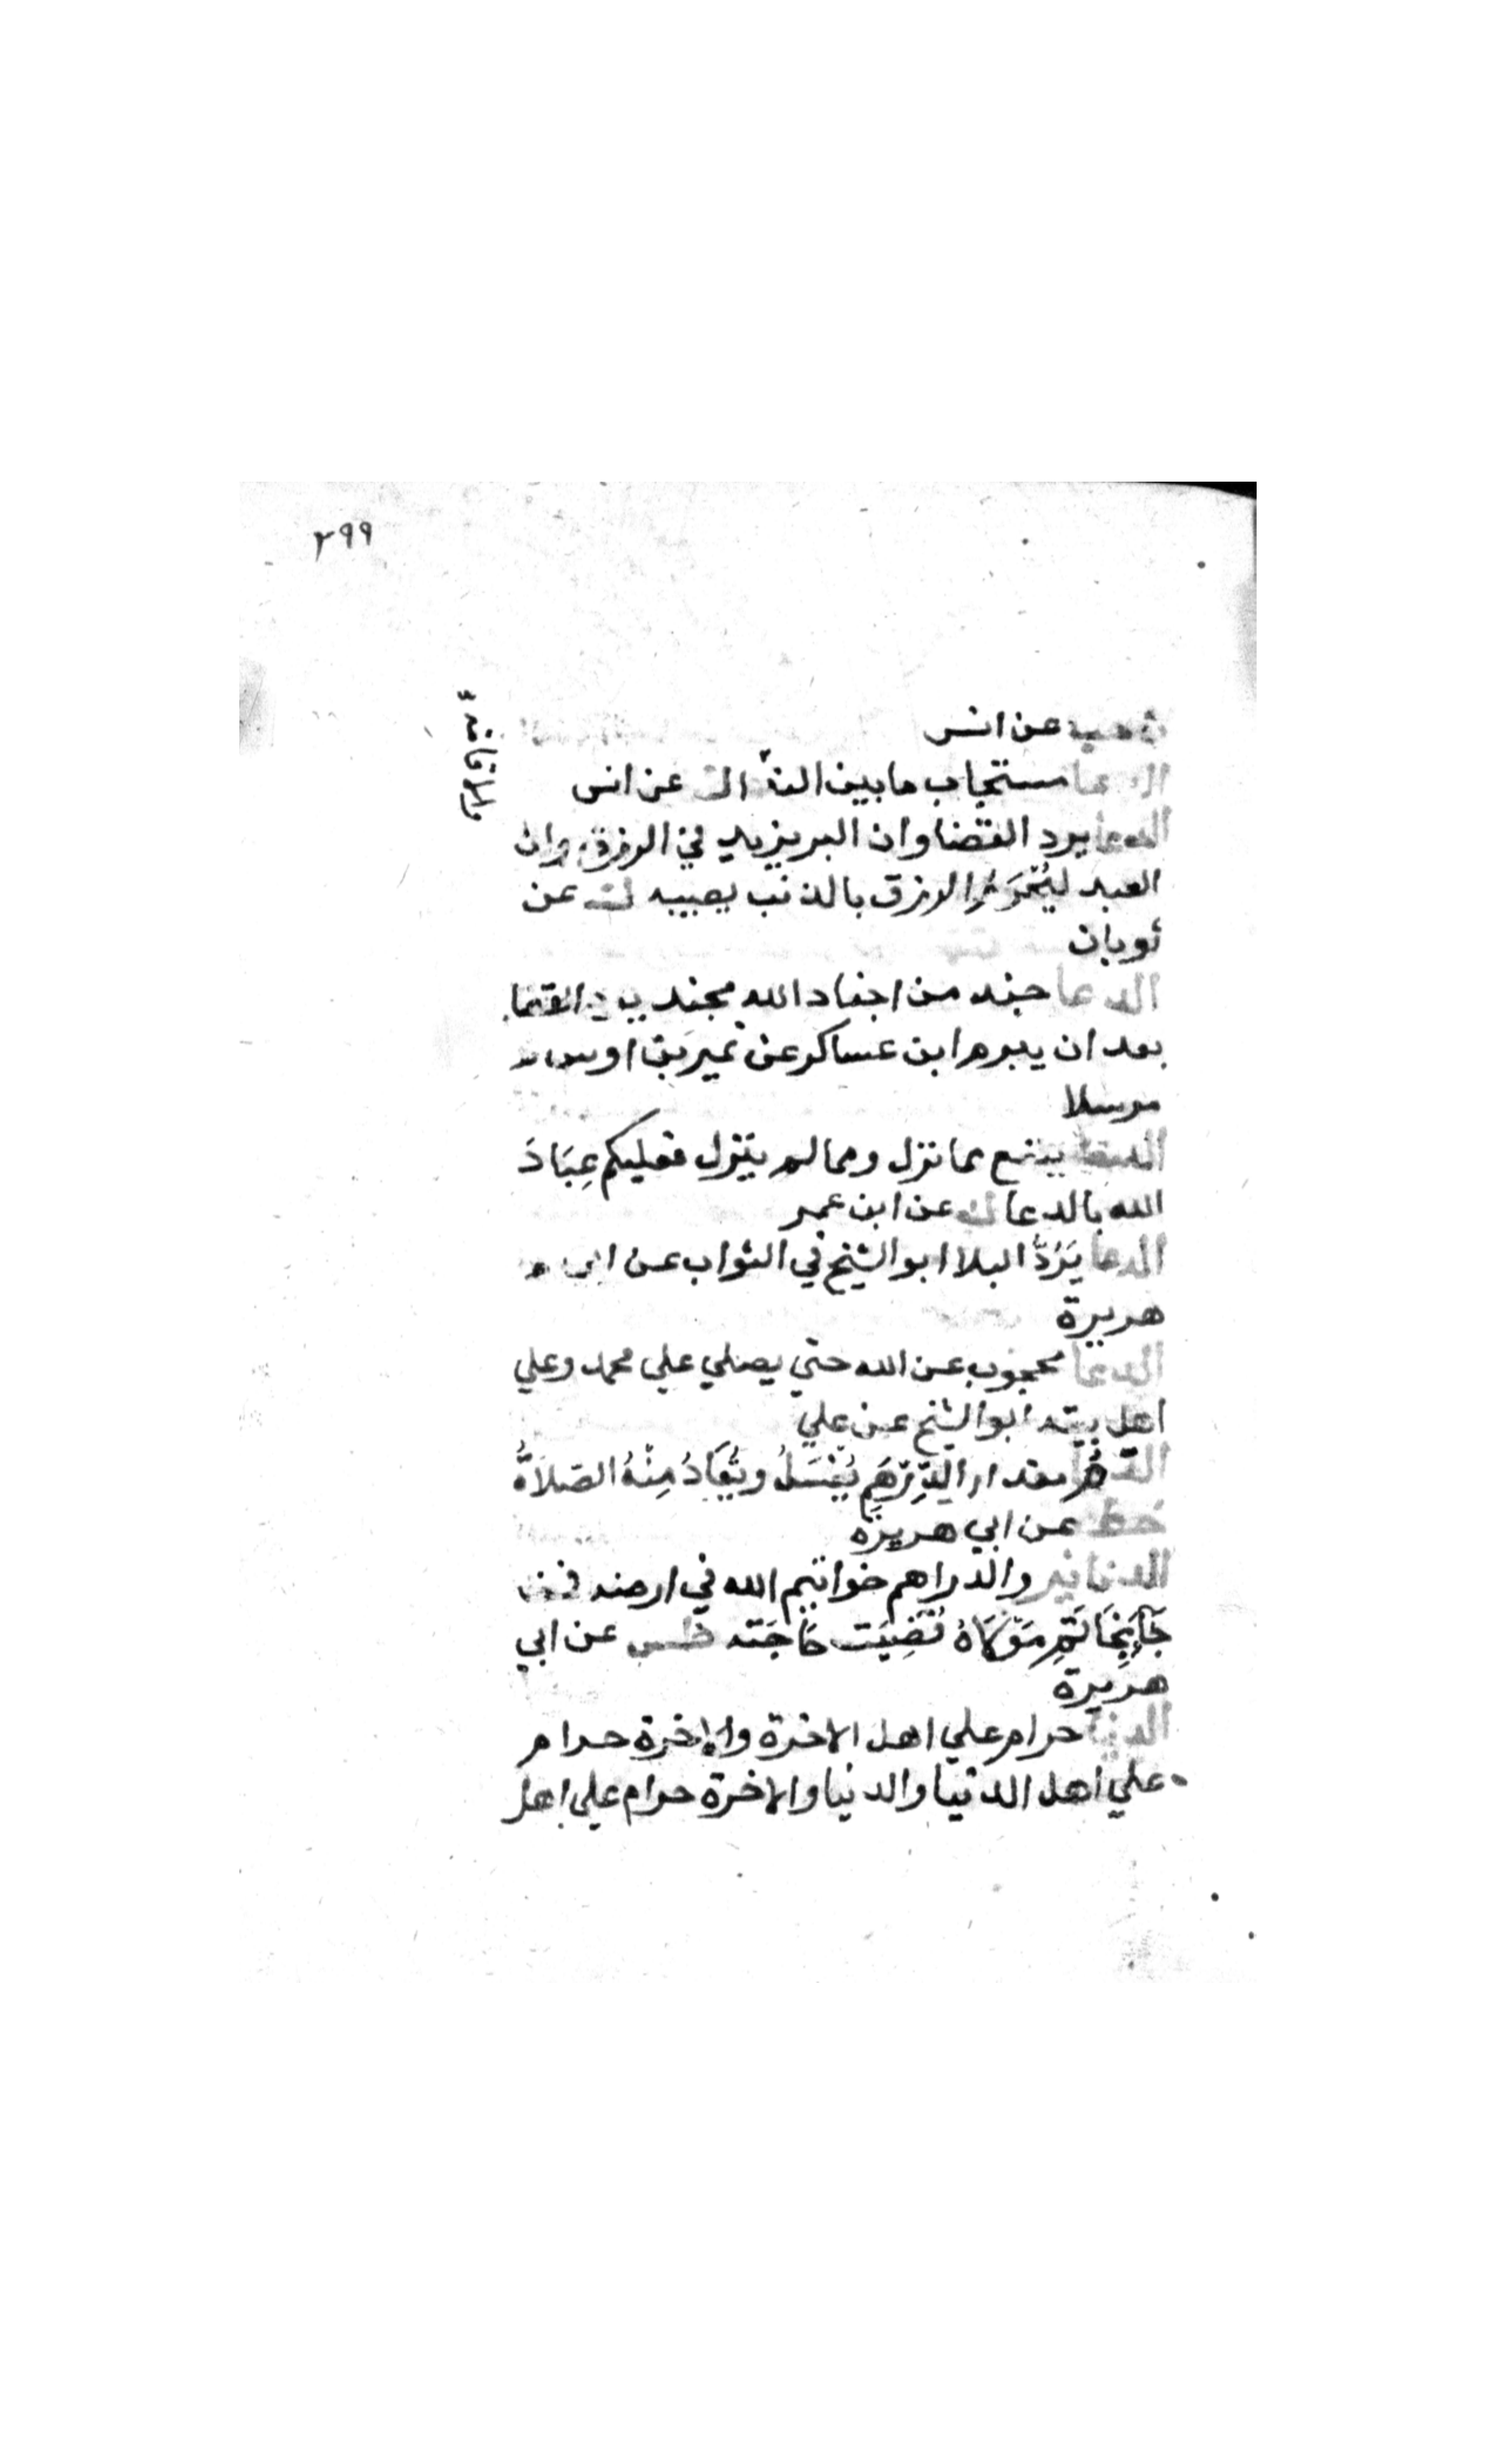 ٢٩٩
عن انس
الدعا مستجاب ما بين الندا عن انس
الدعا يرد القضا وان البر يزيد في الرزق وان
العبد ليُحْرَمُ الرزق بالذنب يصيبه ك عن
ثوبان
الدعا جند من اجناد الله مجند يرد القضا
بعد ان يبرم ابن عساكر عن نمير بن اوس
مرسلا
الدعا ينفع مما نزل ومما لم ينزل فعليكم عِبَادَ
الله بالدعا ك عن ابن عمر
الدعا يَرُدّ البلا ابو الشيخ في الثواب عن ابي
هريرة
الدعا محجوب عن الله حتي يصلي علي محمد وعلي
اهل بيته ابو الشيخ عن علي
الدم مقدار الدِّرْهَمِ يُغْسَلُ ويُعَادُ مِنْهُ الصَلاَةُ
خط عن ابي هريرة
الدنانير والدراهم خواتيم الله في ارضه فمن
جَآءَ بِخَاتَمِ مَوْلَاهُ قُضِيَت حَاجَته طس عن ابي
هريرة
الدنيا حرام علي اهل الاخرة والاخرة حرام
علي اهل الدنيا والدنيا والاخرة حرام علي اهل